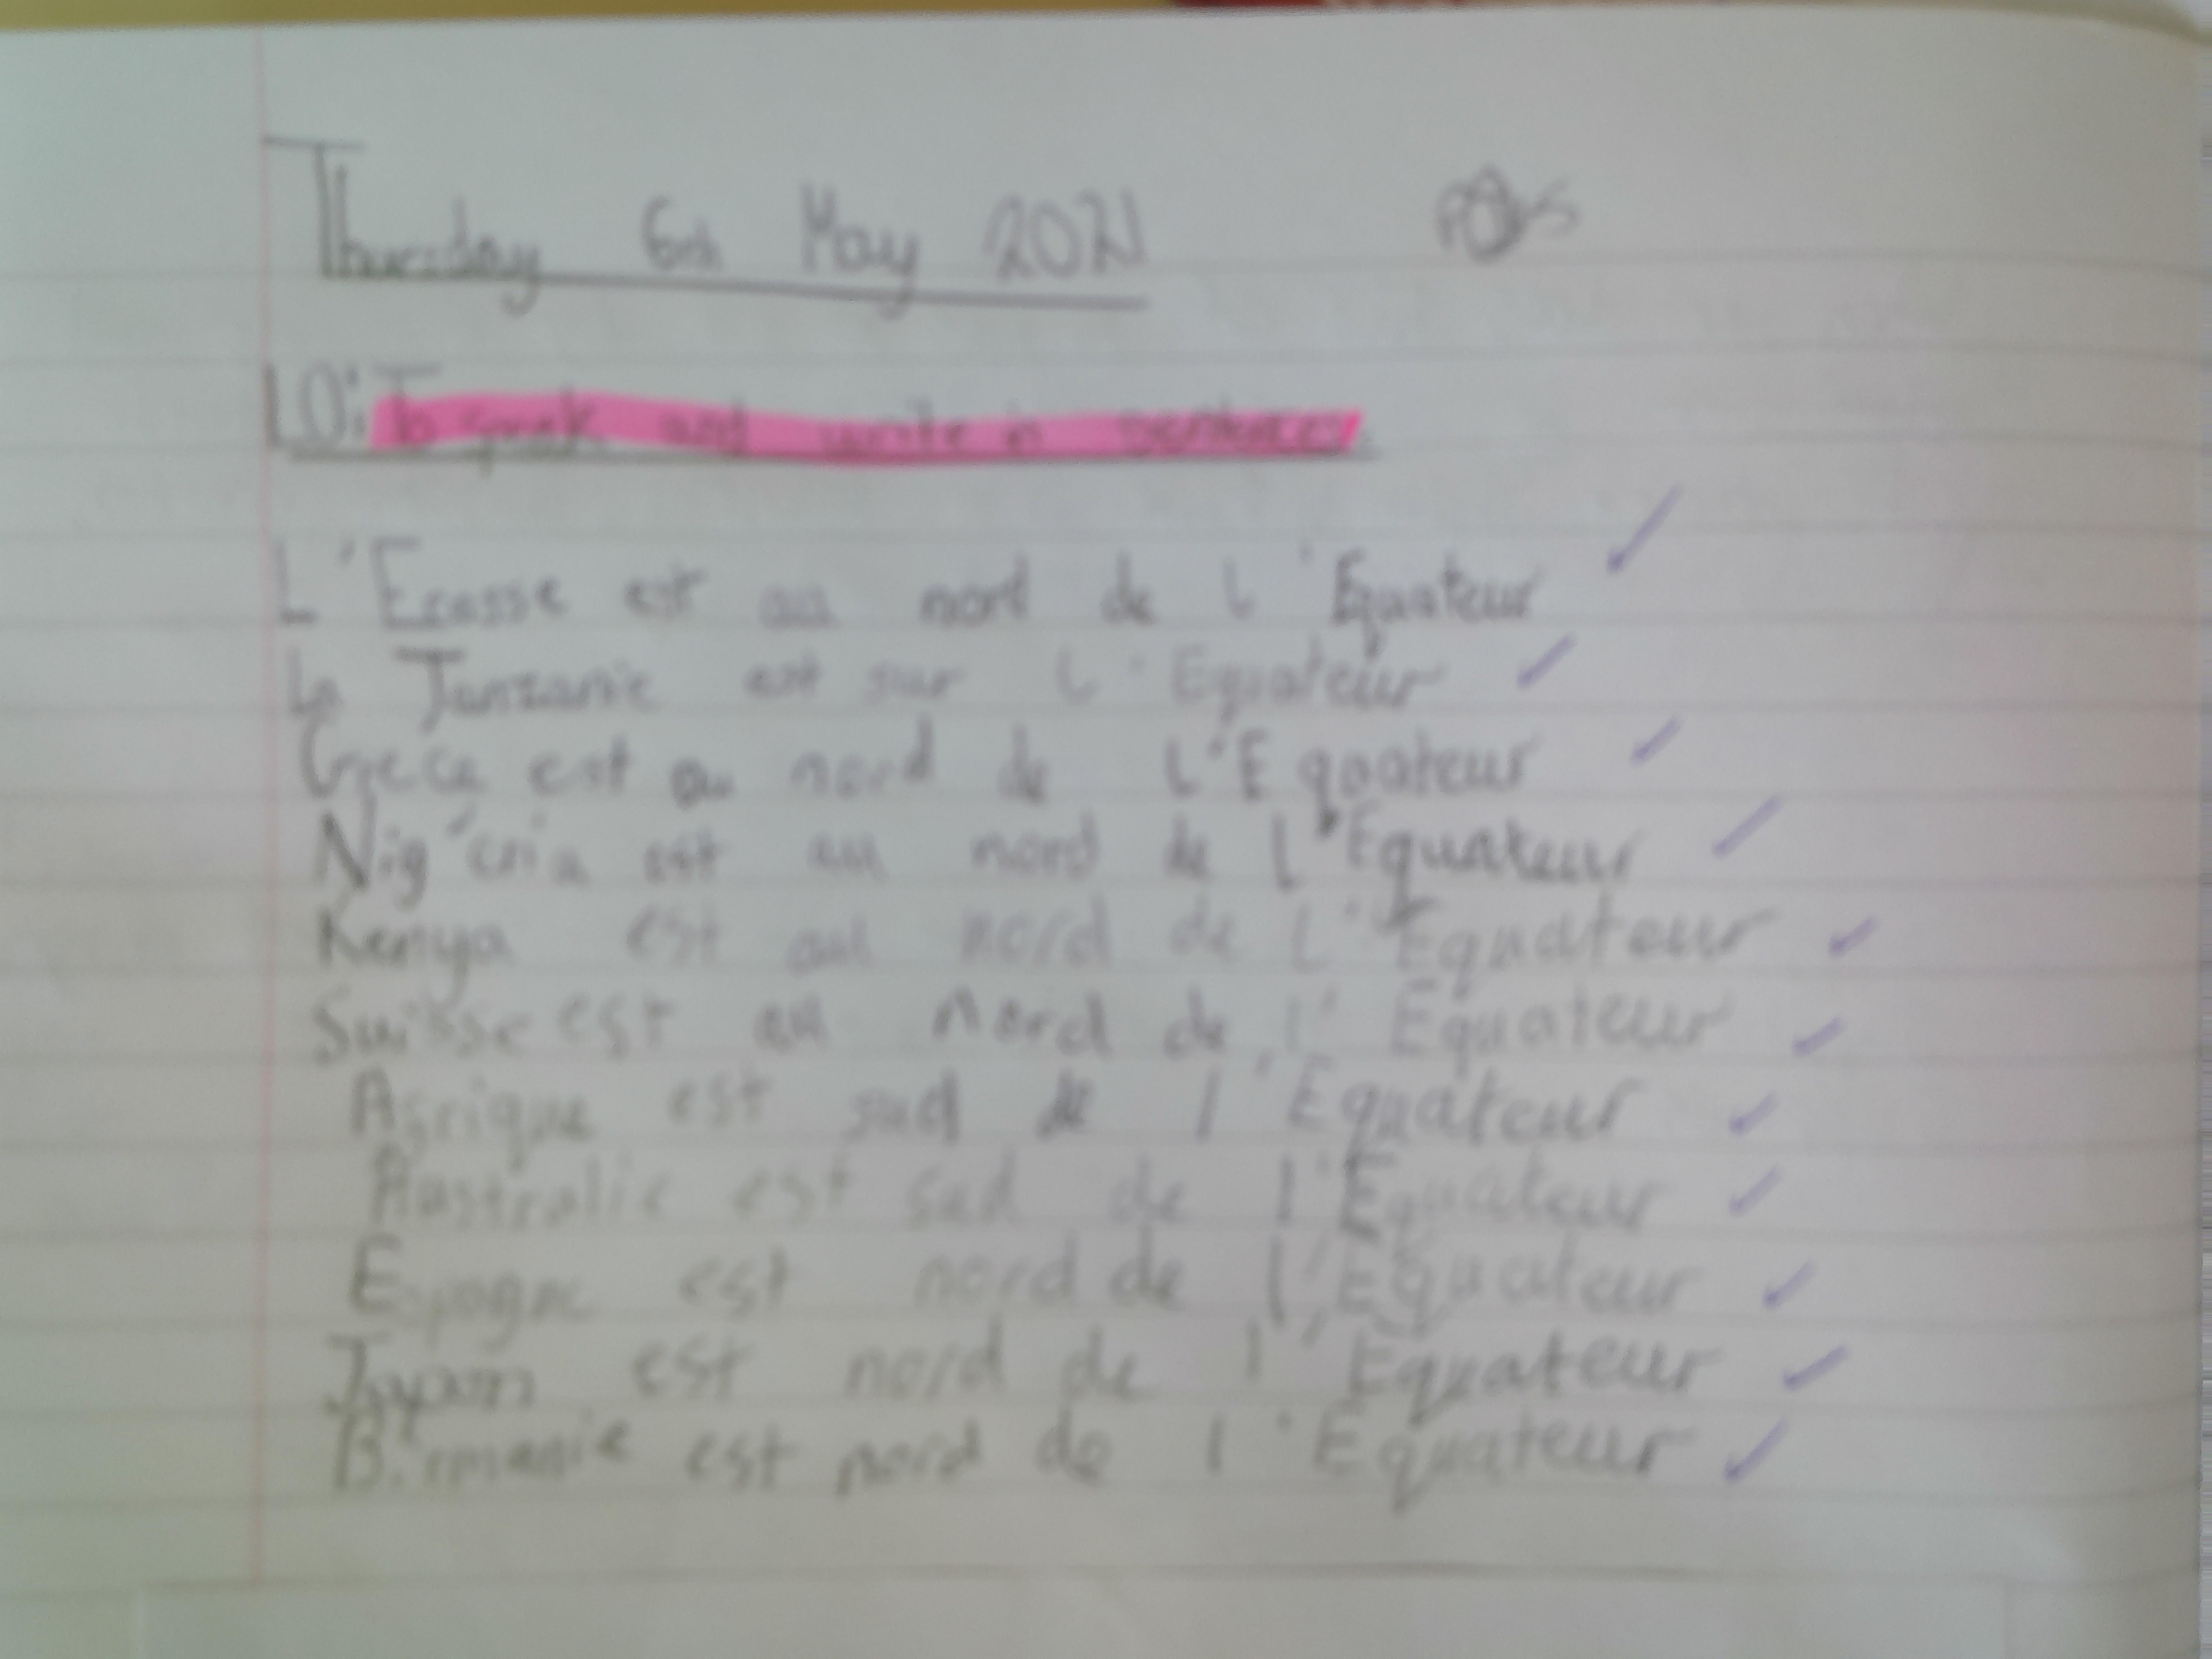 Thursday 6th May 2021
LO: To speak and write in sentences.
L'Ecosse est au nord de l'Equateur
La Tanzanie est sur l'Equateur
Grece est au nord de l'Equateur
Nig'eria est au nord de l'Equateur
Kenya est au nord de l'Equateur
Suisse est au nord de l'Equateur
Afrique est sud de l'Equateur
Australie est sud de l'Equateur
Espagne est nord de l'Equateur
Japon est nord de l'Equateur
Birmanie est nord de l'Equateur